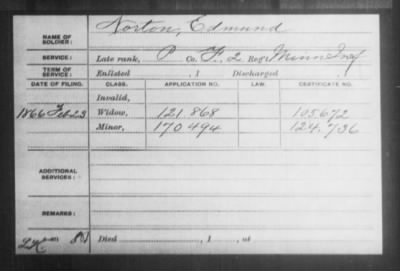 Norton, Edmund
NAME OF SOLDIER:
SERVICE: Late rank, P Co. F, 2 Reg't Minn Inf
TERM OF SERVICE: Enlisted , 1 Discharged , 1
DATE OF FILING. CLASS. APPLICATION NO. LAW. CERTIFICATE NO.
Invalid,
1866 Feb 23 Widow, 121.868 105672
Minor, 170494 124.736
ADDITIONAL SERVICES:
REMARKS:
Died , 1 , at